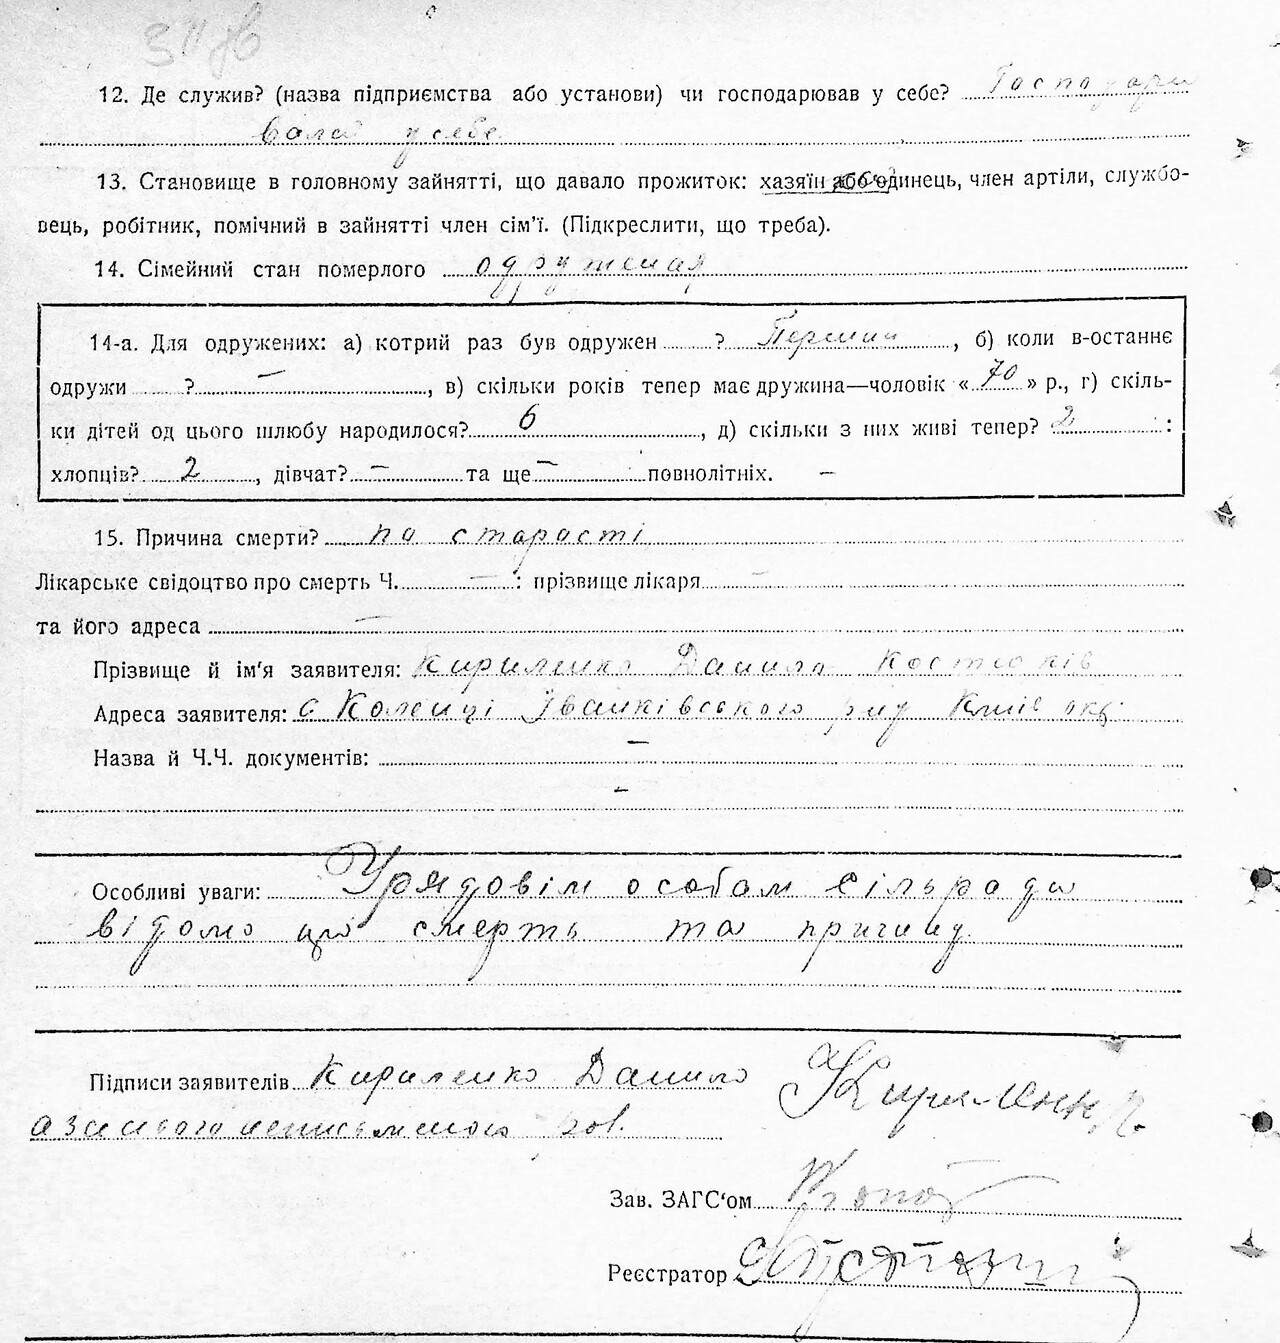 12. Де служив? (назва підприємства або установи) чи господарював у себе? Господарю
вала у себе
13. Становище в головному зайнятті, що давало прожиток: хазяїн або одинець, член артіли, службо-
вець, робітник, помічний в зайнятті член сім'ї. (Підкреслити, що треба).
14. Сімейний стан померлого одружена
14-а. Для одружених: а) котрий раз був одружен ? Перший, б) коли в-останнє
одружи ? —, в) скільки років тепер має дружина—чоловік «70» р., г) скіль-
ки дітей од цього шлюбу народилося? 6, д) скільки з них живі тепер? 2 :
хлопців? 2, дівчат? — та ще — повнолітніх. —
15. Причина смерти? по старасті
Лікарське свідоцтво про смерть Ч. — : прізвище лікаря —
та його адреса —
Прізвище й ім'я заявителя: Кириленко Данило Костюків
Адреса заявителя: с Коленці Іванківського рну Київ окр.
Назва й Ч.Ч. документів: —
—
Особливі уваги: Урядовім особам сільради
відомо про смерть та причину.
Підписи заявителів Кириленко Данило
а за нього неписьменого роз.
Кириленк
Зав. ЗАГС'ом
Реєстратор